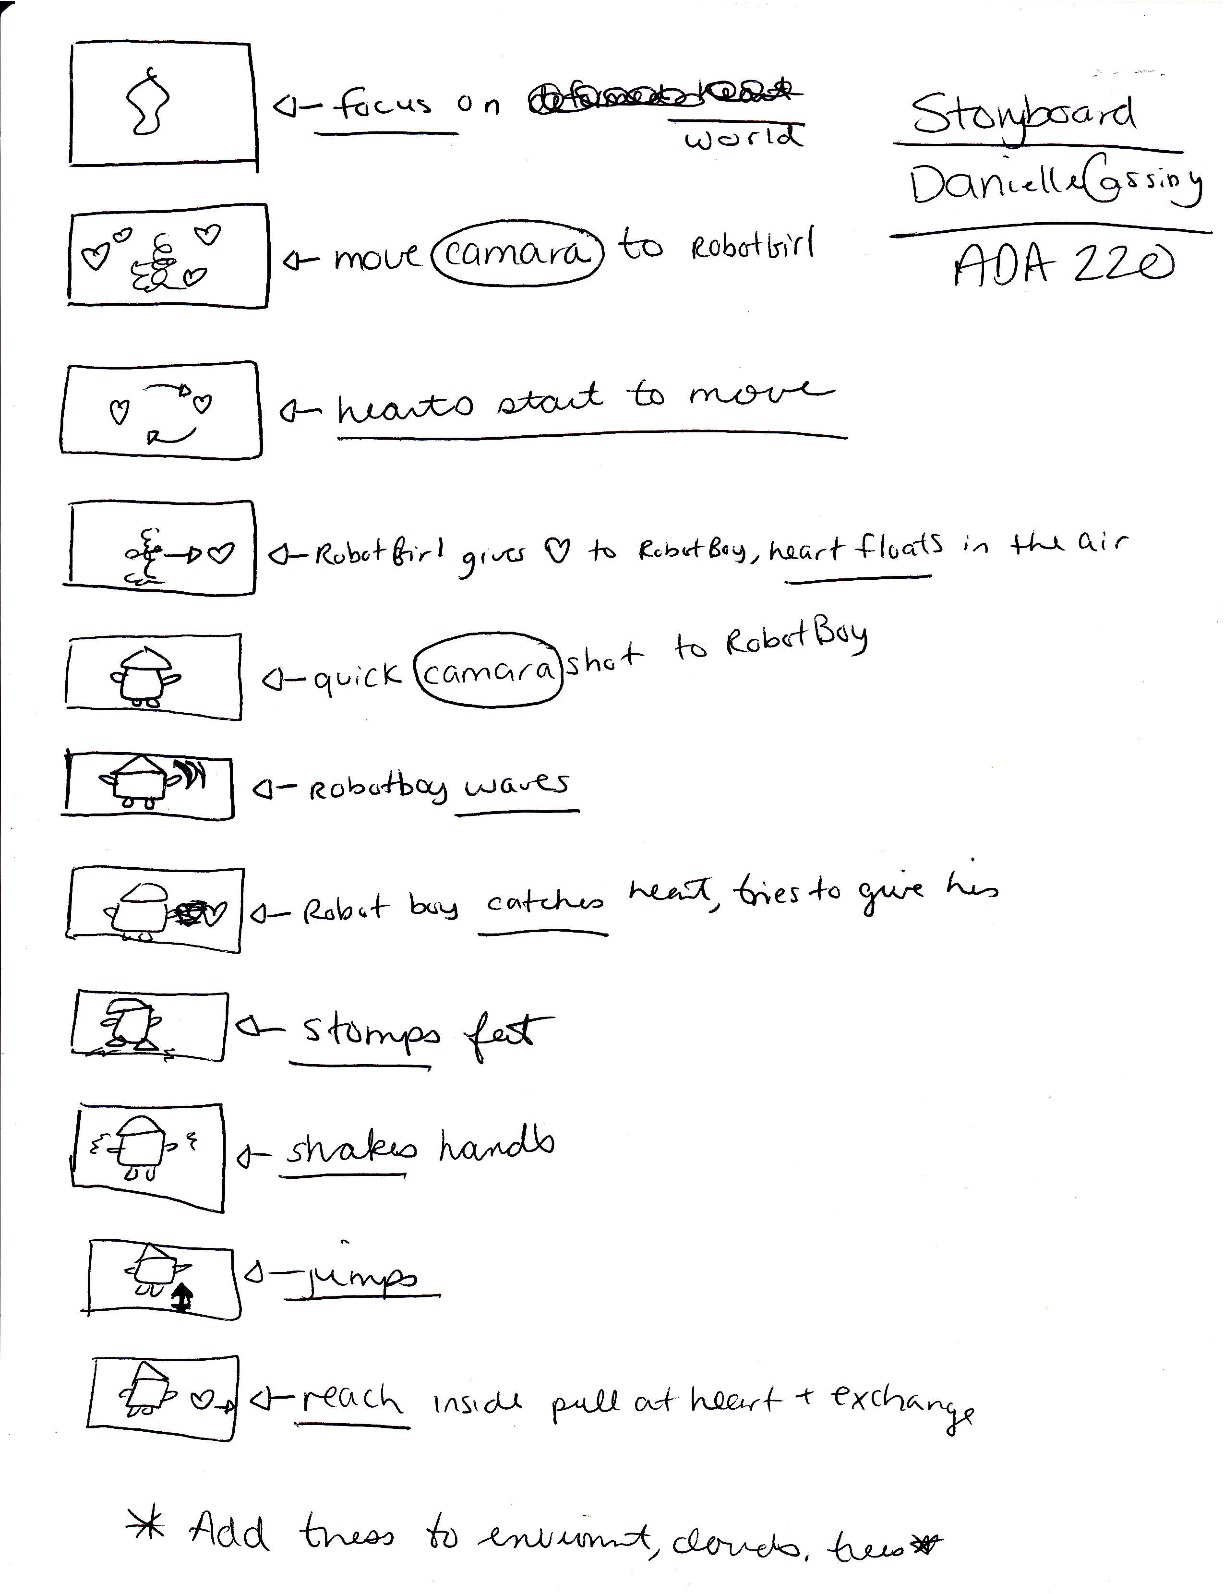 Storyboard
Danielle Cassidy
ADA 220
focus on
world
move camara to RobotGirl
hearts start to move
RobotGirl gives ♡ to RobotBoy, heart floats in the air
quick camara shot to RobotBoy
Robotboy waves
Robot boy catches heart, tries to give his
stomps feet
shakes hands
jumps
reach inside pull at heart + exchange
* Add to clouds, trees *